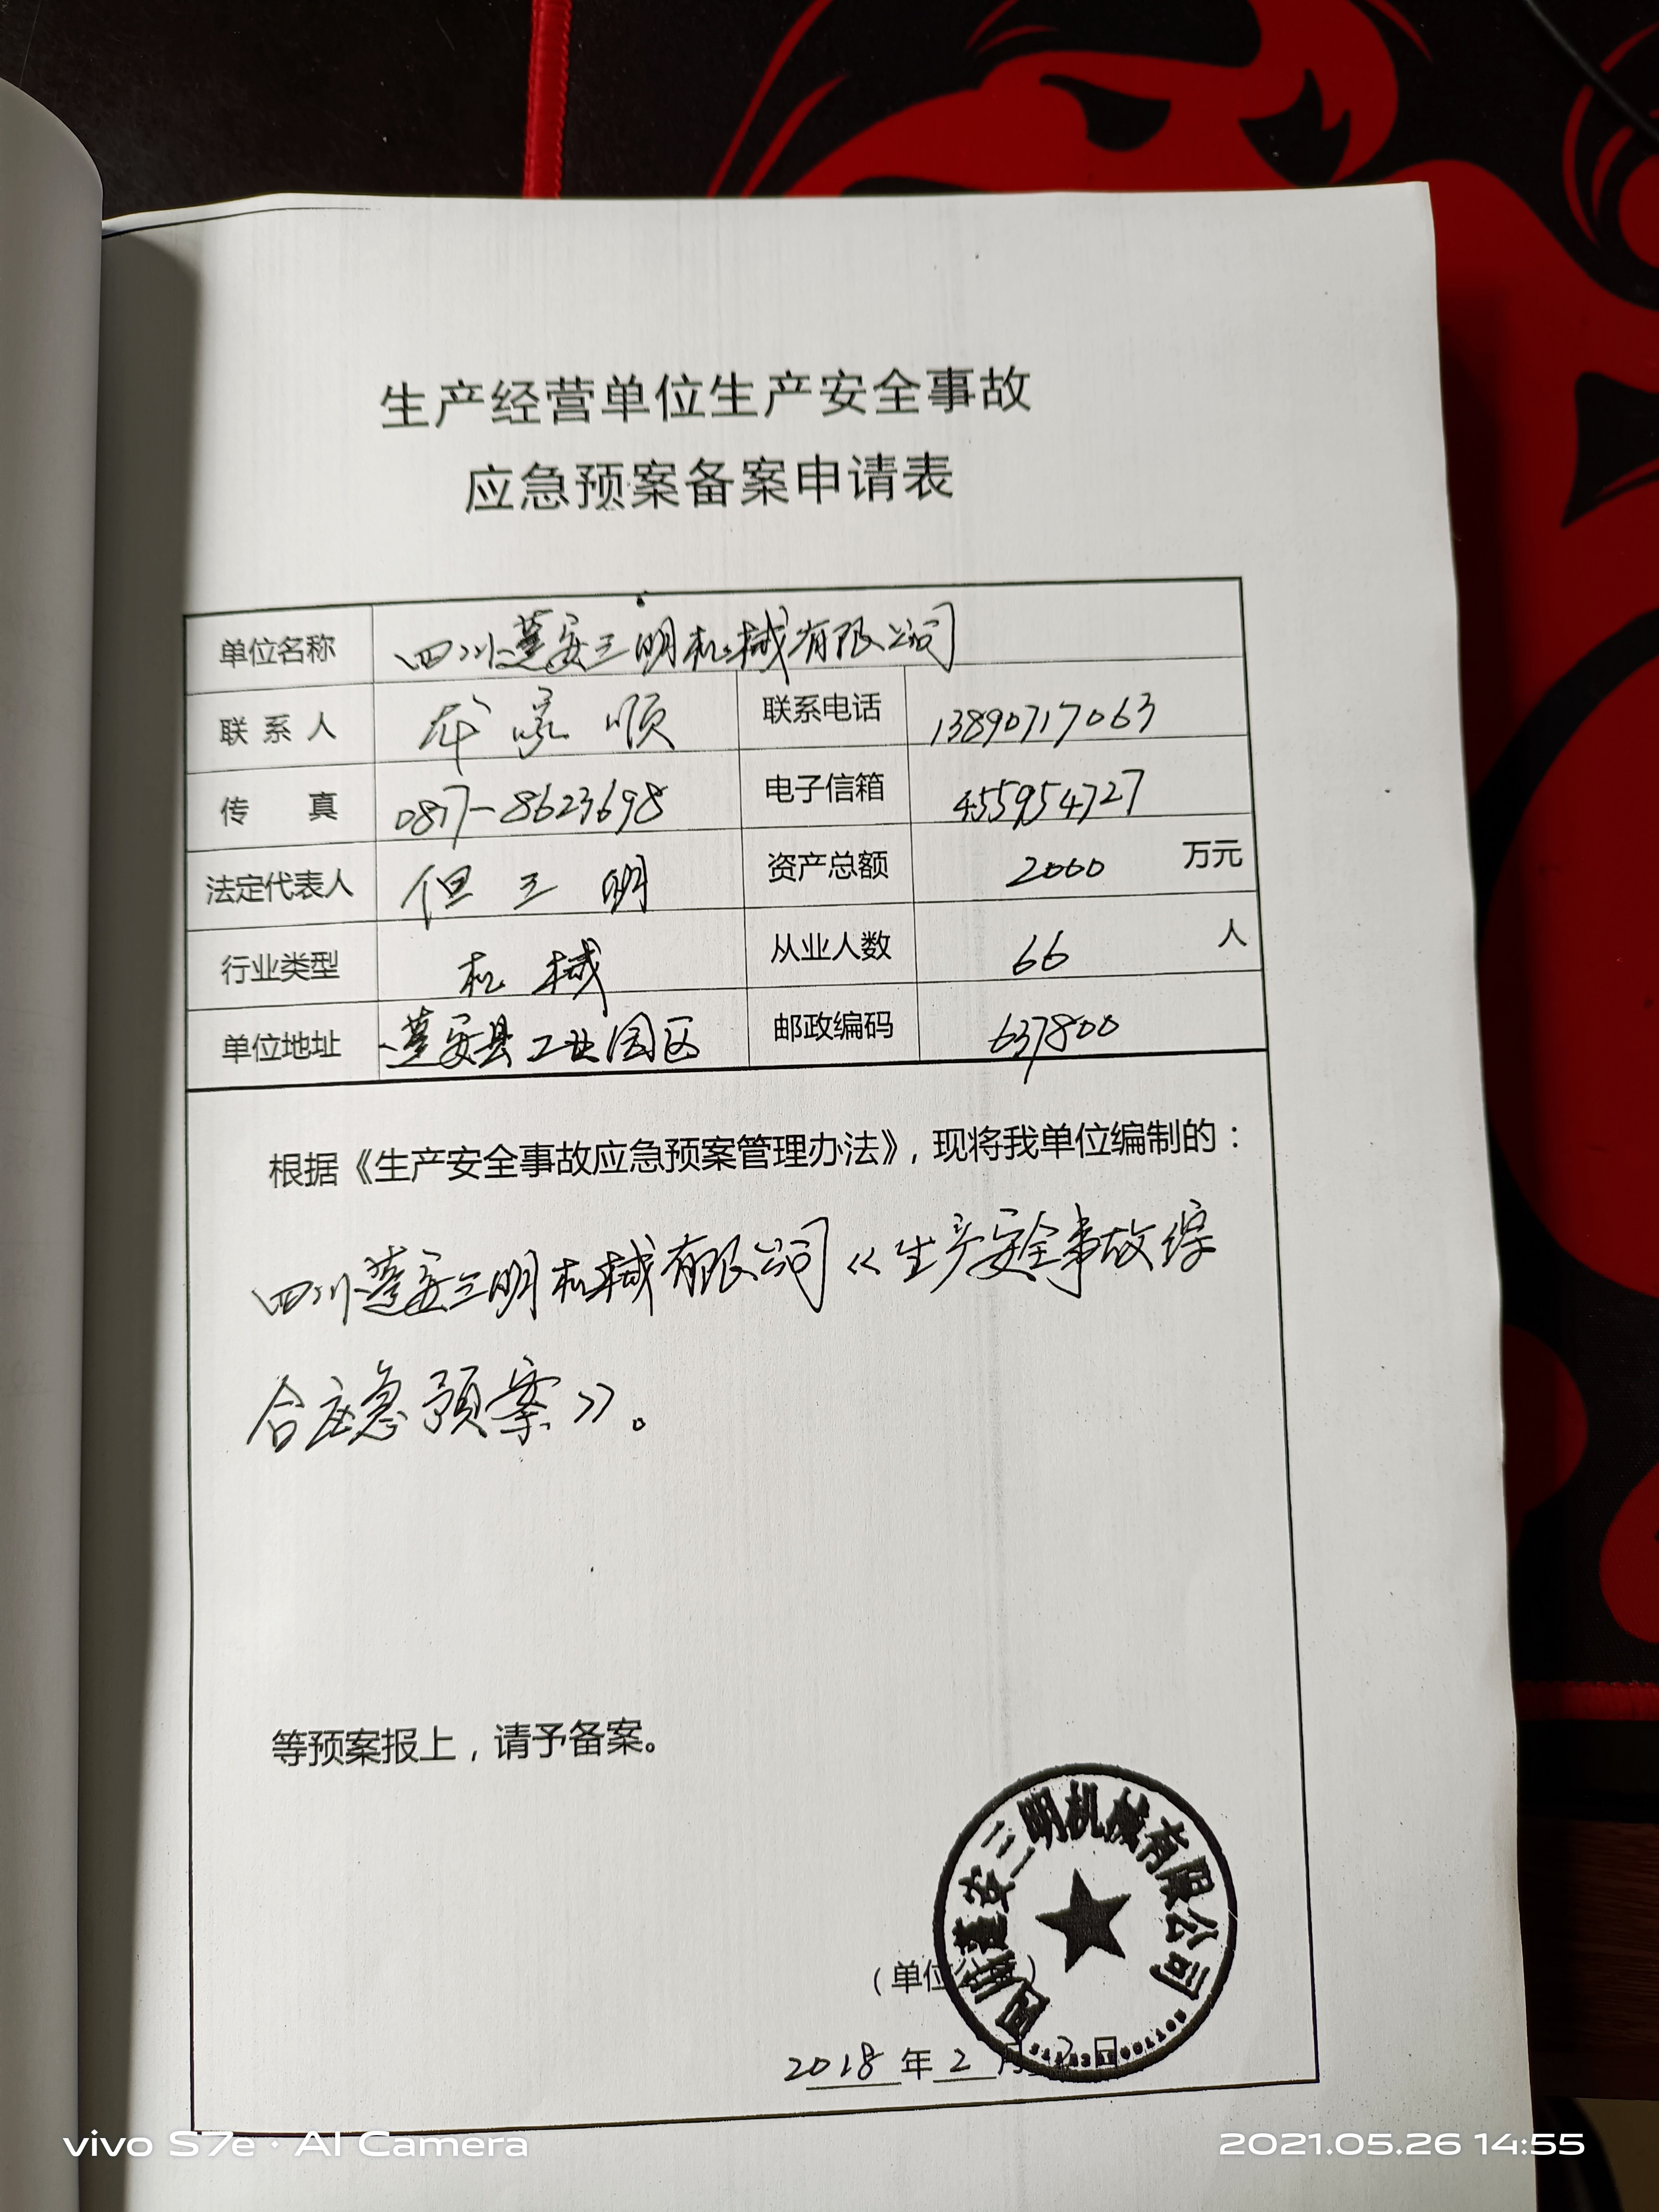 生产经营单位生产安全事故
应急预案备案申请表
单位名称 四川蓬安三明机械有限公司
联系人 龙家顺 联系电话 13890717063
传真 0817-8623698 电子信箱 455954727
法定代表人 但三明 资产总额 2000 万元
行业类型 机械 从业人数 66 人
单位地址 蓬安县工业园区 邮政编码 637800
根据《生产安全事故应急预案管理办法》，现将我单位编制的：
四川蓬安三明机械有限公司《生产安全事故综
合应急预案》。
等预案报上，请予备案。
四川蓬安三明机械有限公司
（单位公章）
2018年2月2日
vivo S7e · AI Camera
2021.05.26 14:55